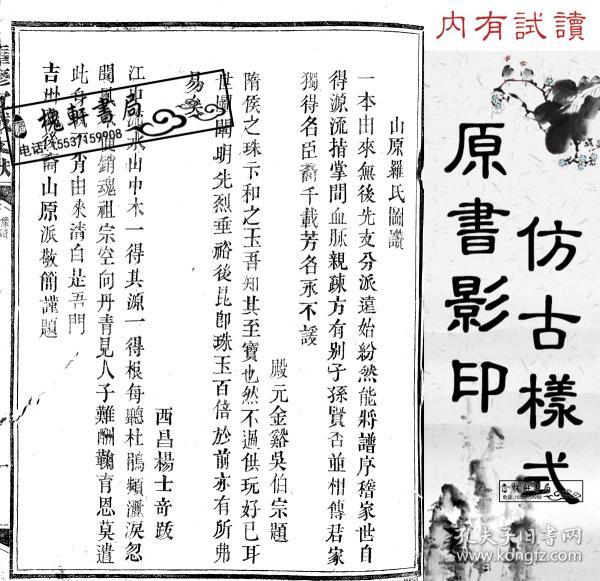 內有試讀
原書影印
仿古樣式
山原羅氏圖讚
一本由來無後先支分派遠始紛然能將譜序稽家世自
得源流指掌間血脉親疎方有别子孫賢否並相傳君家
獨得名臣裔千載芳名永不諼
殿元金谿吳伯宗題
隋侯之珠卞和之玉吾知其至寶也然不過供玩好已耳
世圖開明先烈垂裕後昆即珠玉百倍於前亦有所弗
易矣
西昌楊士奇跋
水山中木一得其源一得根每聽杜鵑頻灑淚忽
聞 銷魂祖宗空向丹青見人子難酬鞠育恩莫遣
此身 由來清白是吾門
吉州 裔山原派敬簡謹題
槐軒書局
电话:15537159908
槐軒書局
孔夫子旧书网
www.kongfz.com